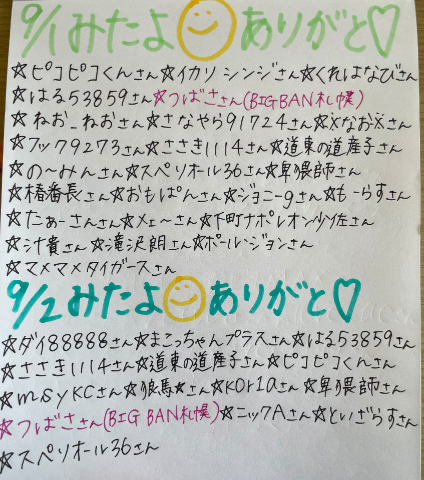 9/1みたよ ありがと♡
☆ピコピコくんさん☆イカリシンジさん☆くれはなびさん
☆はる53859さん☆つばささん(BIGBAN札幌)
☆ねお_ねおさん☆さなやら91724さん☆Xなお☓さん
☆フック79273さん☆ささき1114さん☆道東の道産子さん
☆の〜みんさん☆スペリオール36さん☆卑猥師さん
☆椿番長さん☆おもぱんさん☆ジョニーgさん☆もーらすさん
☆たぁーさんさん☆メェ〜さん☆下町ナポレオン少佐さん
☆汁貴さん☆滝沢朗さん☆ポールジョンさん
☆マメマメタイガースさん
9/2みたよ ありがと♡
☆ダイ88888さん☆まこっちゃんプラスさん☆はる53859さん
☆ささき1114さん☆道東の道産子さん☆ピコピコくんさん
☆msykcさん☆狼馬★さん☆kor1aさん☆卑猥師さん
☆つばささん(BIG BAN札幌)☆ニックAさん☆といざらすさん
☆スペリオール36さん